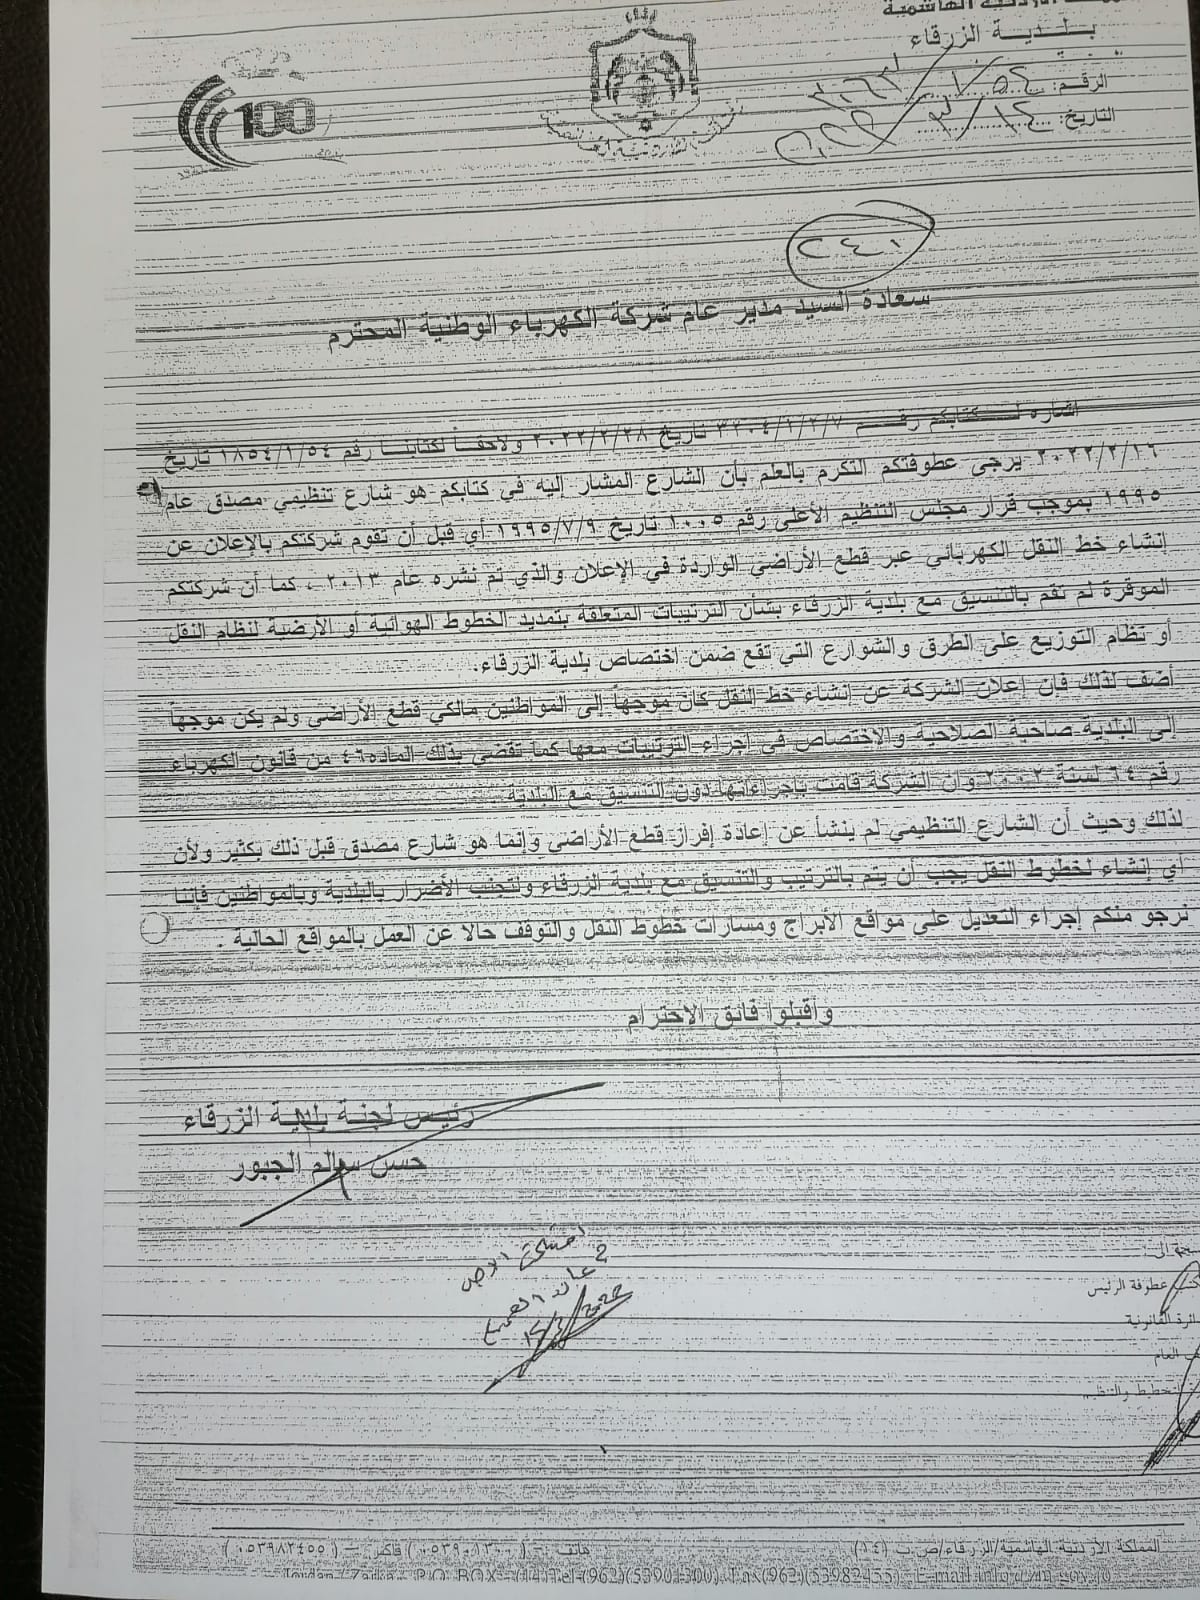 الأردنية الهاشمية
بلدية الزرقاء
الرقم: ٥٤/١/
التاريخ: ١٤/٣/
100
٢٤١
سعادة السيد مدير عام شركة الكهرباء الوطنية المحترم
اشارة لكتابكم رقم ٣٢٠٤/٢/٢/٧ تاريخ ٢٠٢٢/٢/٢٨ ولاحقاً لكتابنا رقم ١٨٥٤/١/٥٤ تاريخ
٢٠٢٢/٢/١٦ يرجى عطوفتكم التكرم بالعلم بأن الشارع المشار إليه في كتابكم هو شارع تنظيمي مصدق عام
١٩٩٥ بموجب قرار مجلس التنظيم الأعلى رقم ١٠٠٥ تاريخ ١٩٩٥/٧/٩ أي قبل أن تقوم شركتكم بالإعلان عن
إنشاء خط النقل الكهربائي عبر قطع الأراضي الواردة في الإعلان والذي تم نشره عام ٢٠١٣ ، كما أن شركتكم
الموقرة لم تقم بالتنسيق مع بلدية الزرقاء بشأن الترتيبات المتعلقة بتمديد الخطوط الهوائية أو الأرضية لنظام النقل
أو نظام التوزيع على الطرق والشوارع التي تقع ضمن اختصاص بلدية الزرقاء.
أضف لذلك فان إعلان الشركة عن إنشاء خط النقل كان موجهاً إلى المواطنين مالكي قطع الأراضي ولم يكن موجهاً
إلى البلدية صاحبة الصلاحية والاختصاص في إجراء الترتيبات معها كما تقضي بذلك المادة ٤٦ من قانون الكهرباء
رقم ٦٤ لسنة ٢٠٠٢ وان الشركة قامت بإجراءاتها دون التنسيق مع البلدية
لذلك وحيث أن الشارع التنظيمي لم ينشأ عن إعادة إفراز قطع الأراضي وإنما هو شارع مصدق قبل ذلك بكثير ولأن
أي إنشاء لخطوط النقل يجب أن يتم بالترتيب والتنسيق مع بلدية الزرقاء ولتجنب الأضرار بالبلدية وبالمواطنين فإننا
نرجو منكم إجراء التعديل على مواقع الأبراج ومسارات خطوط النقل والتوقف حالا عن العمل بالمواقع الحالية .
وأقبلوا فائق الاحترام
رئيس لجنة بلدية الزرقاء
حسن سالم الجبور
عطوفة الرئيس
القانونية
العام
والتنظيم
المملكة الأردنية الهاشمية/الزرقاء/ص.ب (١٤) هاتف – (٠٥٣٩٠١٣٠٠) فاكس – (٠٥٣٩٨٢٤٥٥)
Jordan / Zarka - P.O. BOX - (14) Tel (962)(53901300). Fax (962)(53982455) - E-mail